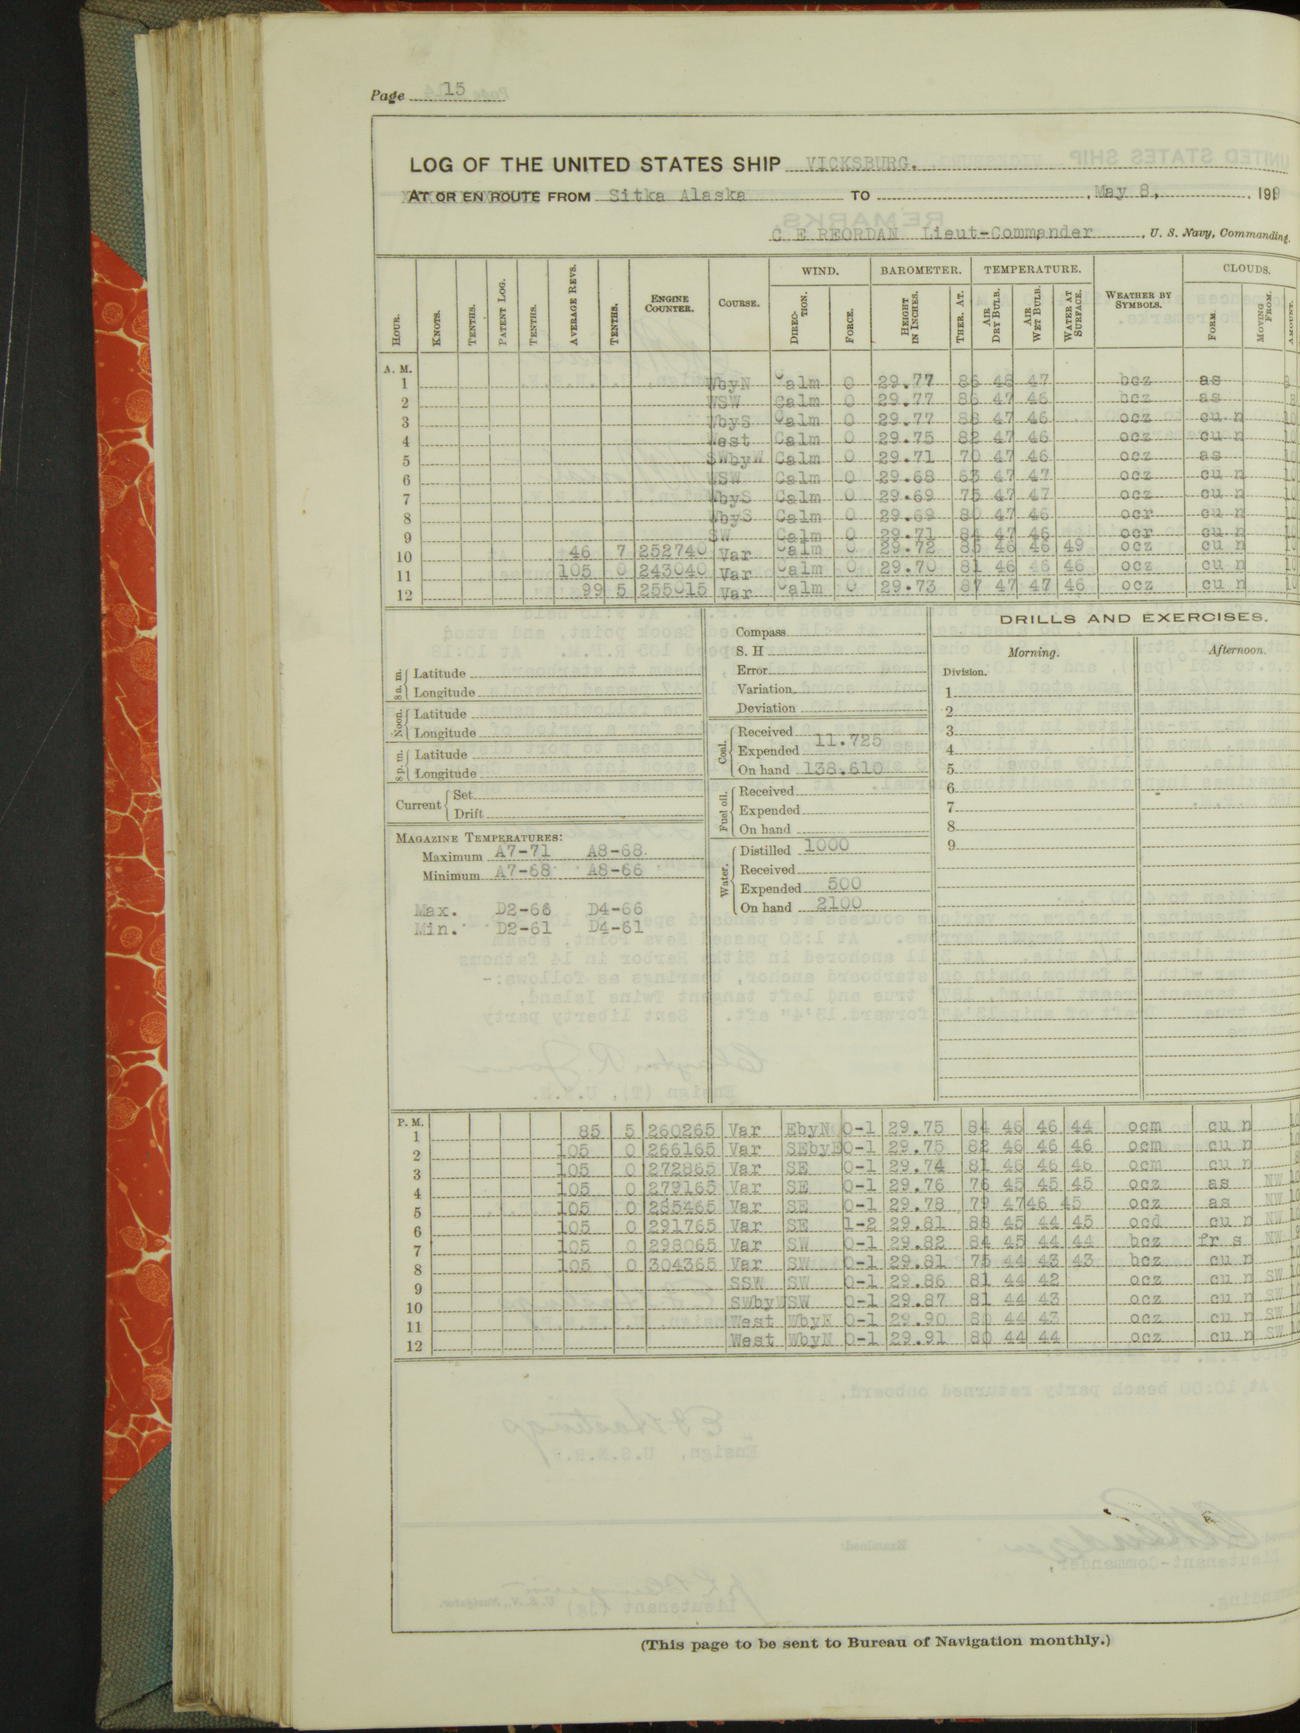 Page 15
LOG OF THE UNITED STATES SHIP VICKSBURG.
AT OR EN ROUTE FROM Sitka Alaska TO , May 8, , 1919
C E REORDAN Lieut-Commander , U. S. Navy, Commanding.
WIND. BAROMETER. TEMPERATURE. CLOUDS.
HOUR. KNOTS. TENTHS. PATENT LOG. TENTHS. AVERAGE REVS. TENTHS. ENGINE COUNTER. COURSE. DIRECTION. FORCE. HEIGHT IN INCHES. THER. AT. AIR DRY BULB. AIR WET BULB. WATER AT SURFACE. WEATHER BY SYMBOLS. FORM. MOVING FROM. AMOUNT.
A. M.
1 WbyN Calm 0 29.77 86 48 47 bcz as
2 WSW Calm 0 29.77 86 47 46 bcz as
3 WbyS Calm 0 29.77 88 47 46 ocz cu n 10
4 West Calm 0 29.75 82 47 46 ocz cu n 10
5 SWbyW Calm 0 29.71 70 47 46 ocz as 10
6 WSW Calm 0 29.68 63 47 47 ocz cu n 10
7 WbyS Calm 0 29.69 75 47 47 ocz cu n 10
8 WbyS Calm 0 29.69 80 47 46 ocr cu n 10
9 SW Calm 0 29.71 84 47 46 ocr cu n 10
10 46 7 252740 Var Calm 0 29.72 85 46 46 49 ocz cu n 10
11 105 0 243040 Var Calm 0 29.70 81 46 46 46 ocz cu n 10
12 99 5 255015 Var Calm 0 29.73 87 47 47 46 ocz cu n 10
8 a. m. Latitude
Longitude
Noon. Latitude
Longitude
8 p. m. Latitude
Longitude
Current Set
Drift
MAGAZINE TEMPERATURES:
Maximum A7-71 A8-68.
Minimum A7-68 A8-66
Max. D2-66 D4-66
Min. D2-61 D4-61
Compass
S. H
Error
Variation
Deviation
Coal. Received
Expended 11.725
On hand 138.610
Fuel oil. Received
Expended
On hand
Water. Distilled 1000
Received
Expended 500
On hand 2100
DRILLS AND EXERCISES.
Morning. Afternoon.
Division.
1
2
3
4
5
6
7
8
9
P. M.
1 85 5 260265 Var EbyN 0-1 29.75 84 46 46 44 ocm cu n 10
2 105 0 266165 Var SEbyE 0-1 29.75 82 46 46 46 ocm cu n 10
3 105 0 272865 Var SE 0-1 29.74 81 46 46 46 ocm cu n
4 105 0 279165 Var SE 0-1 29.76 76 45 45 45 ocz as NW 10
5 105 0 285465 Var SE 0-1 29.78 79 47 46 45 ocz as NW 10
6 105 0 291765 Var SE 1-2 29.81 88 45 44 45 ocd cu n NW 10
7 105 0 298065 Var SW 0-1 29.82 84 45 44 44 bcz fr s NW
8 105 0 304365 Var SW 0-1 29.81 75 44 43 43 bcz cu n 10
9 SSW SW 0-1 29.86 81 44 42 ocz cu n SW 10
10 SWbyW SW 0-1 29.87 81 44 43 ocz cu n SW 10
11 West WbyN 0-1 29.90 80 44 43 ocz cu n SW 10
12 West WbyN 0-1 29.91 80 44 44 ocz cu n SW 10
(This page to be sent to Bureau of Navigation monthly.)